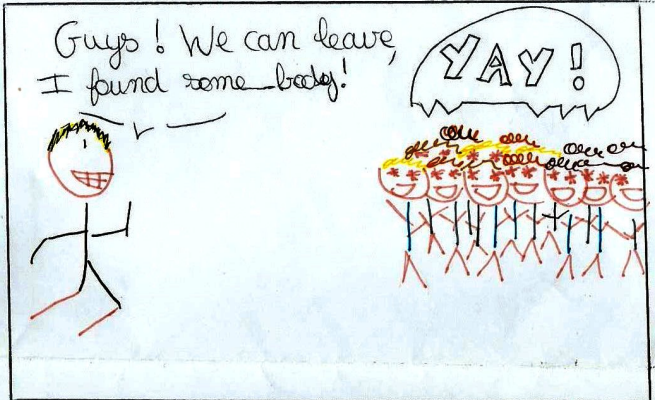 Guys! We can leave,
I found some_body!
YAY!